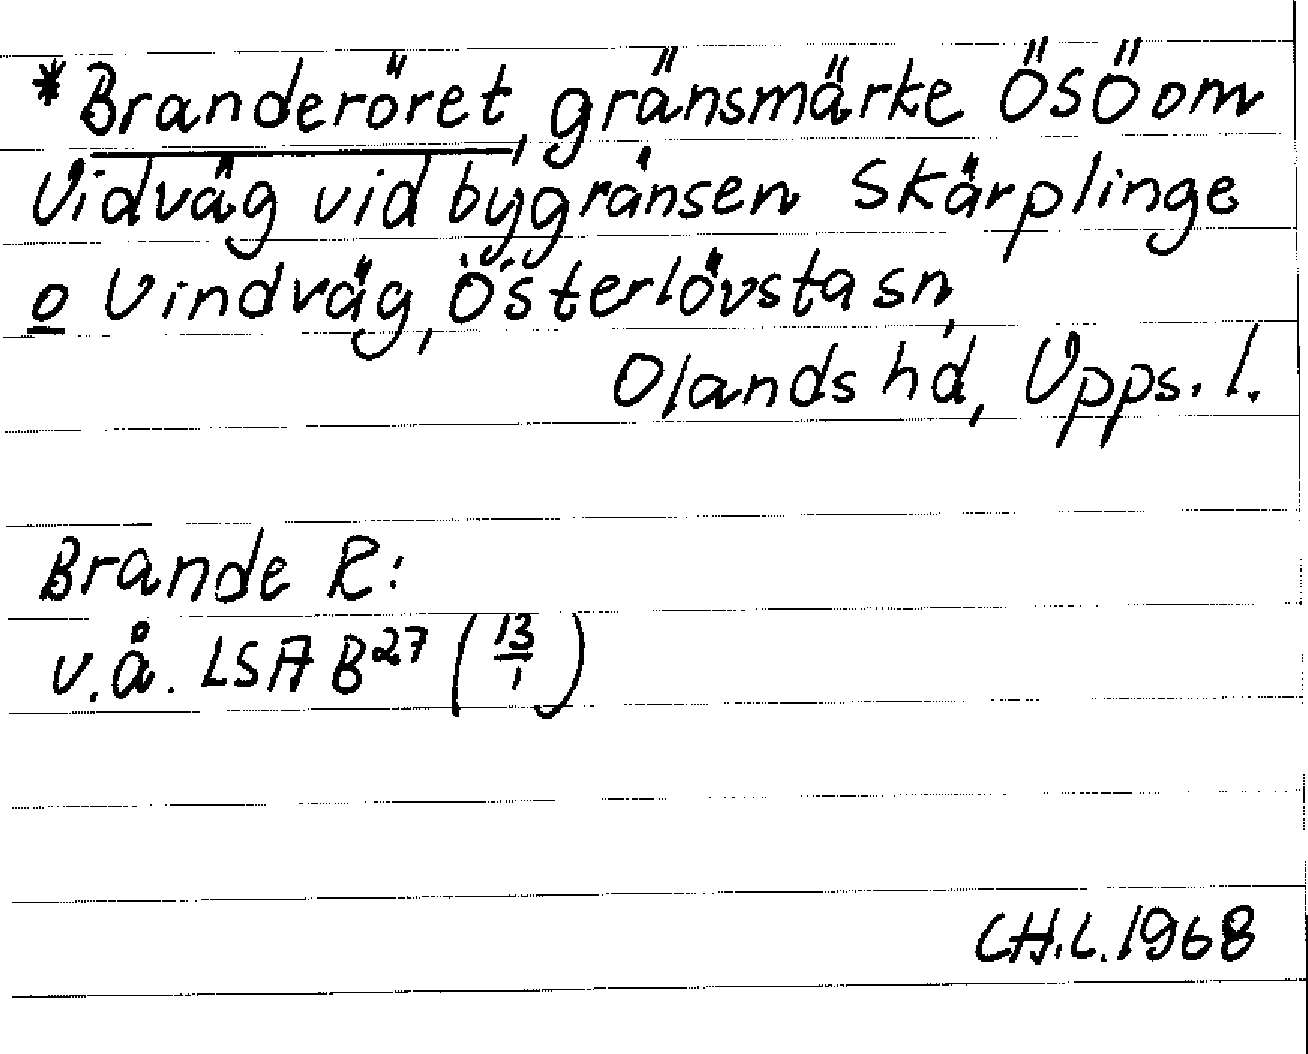 *Branderöret, gränsmärke ÖSÖ om
Vidväg vid bygränsen Skärplinge
o Vindväg, Österlövsta sn,
Olands hd, Upps. l.
Brande R:
v.å. LSA B27 (13/1)
CH.L. 1968